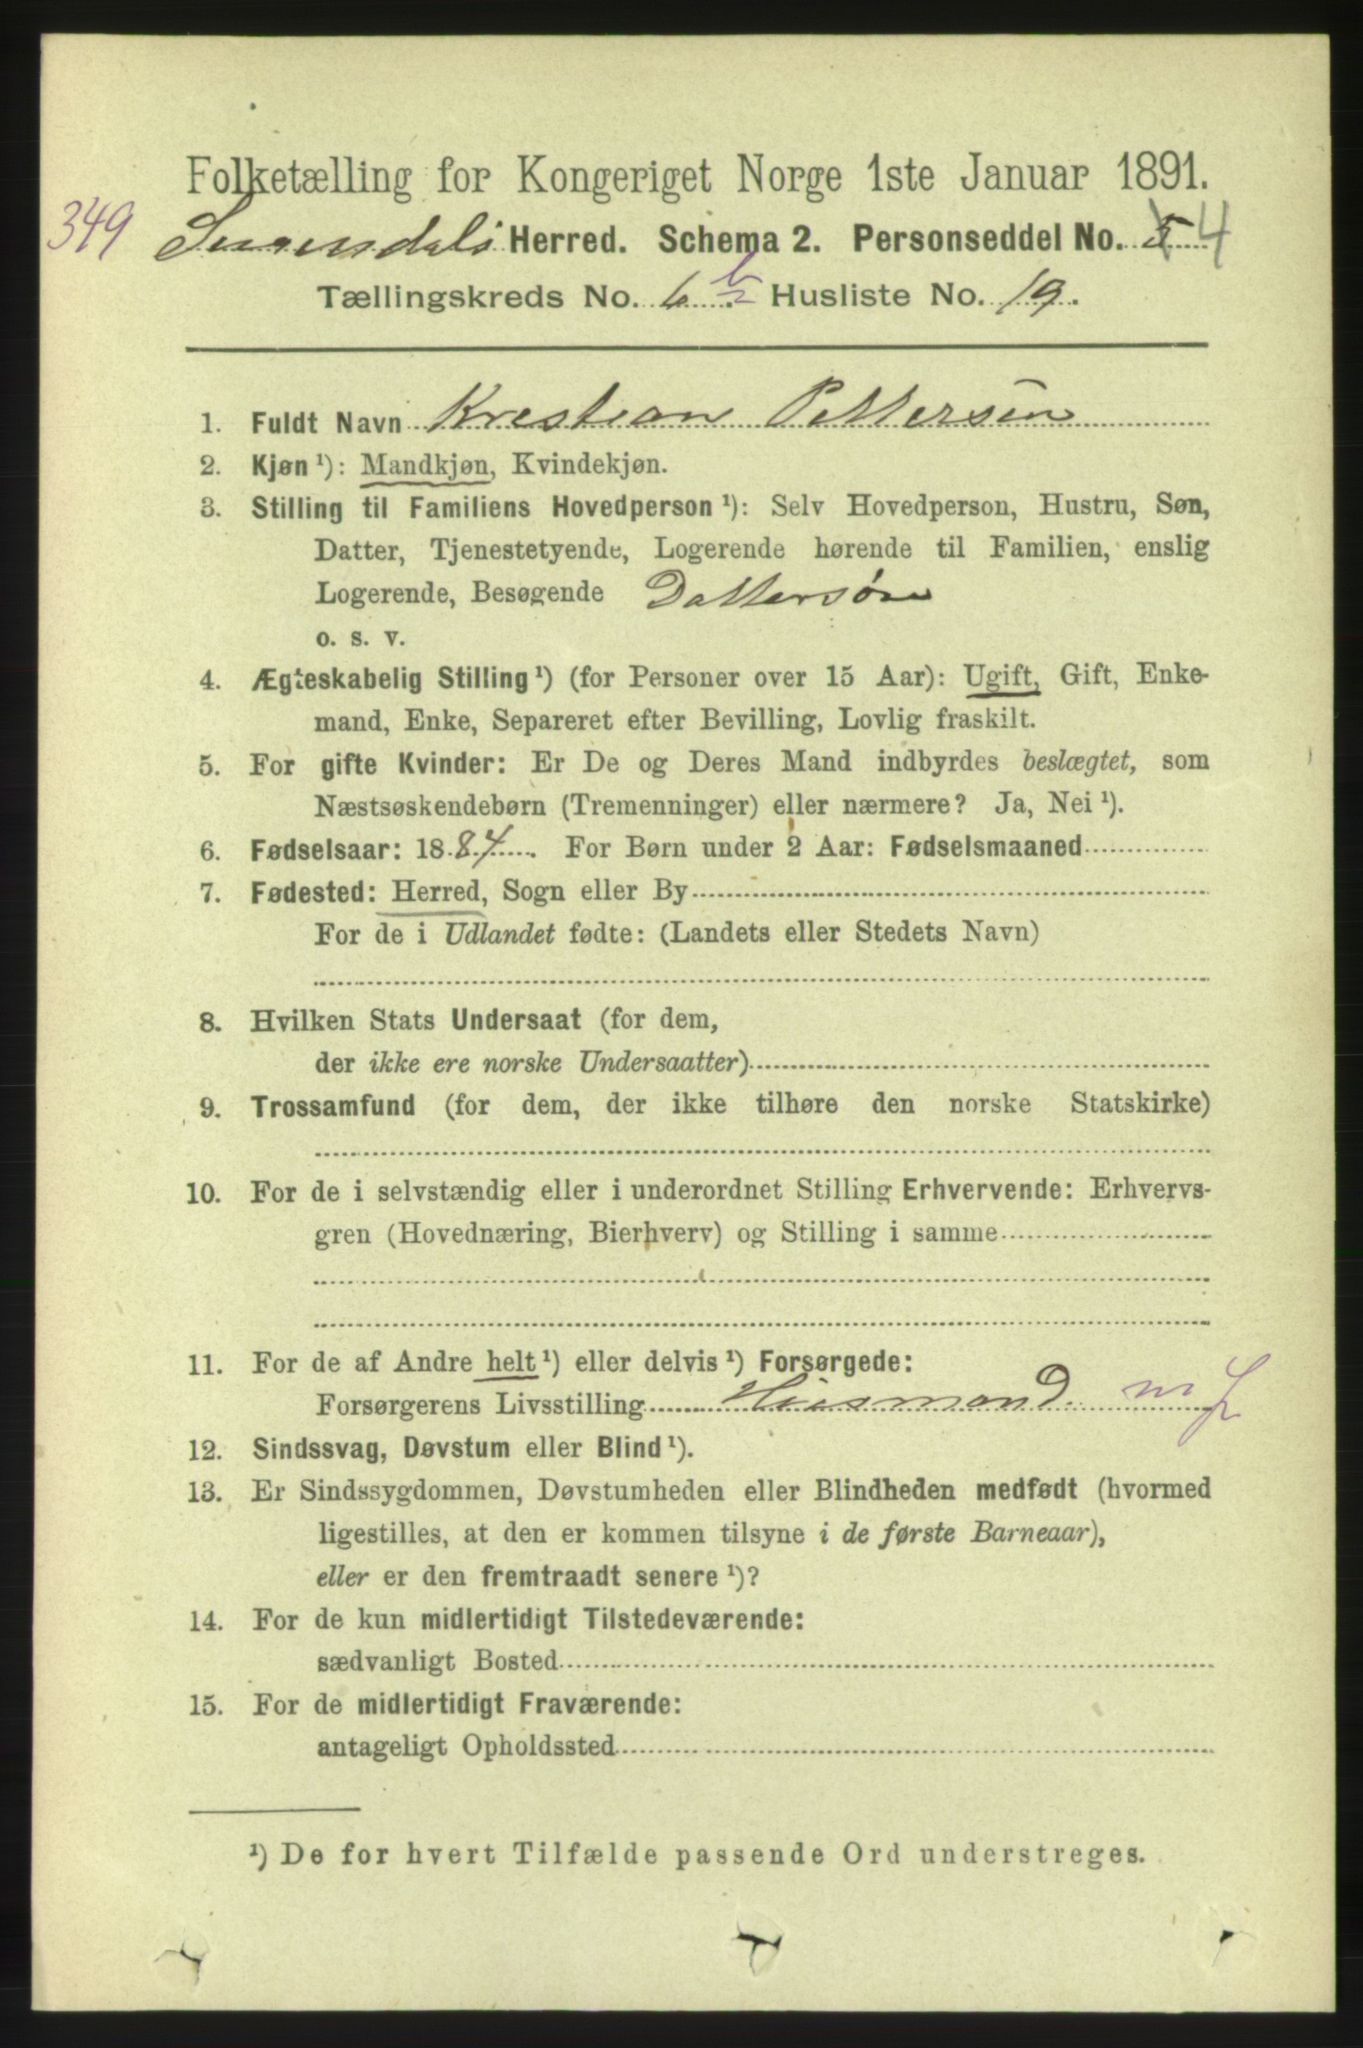 Folketælling for Kongeriget Norge 1ste Januar 1891.
349 Surendals Herred. Schema 2. Personseddel No. 5 4
Tællingskreds No. 6 b Husliste No. 19.
1. Fuldt Navn Krestian Pettersen
2. Kjøn ¹): Mandkjøn, Kvindekjøn.
3. Stilling til Familiens Hovedperson ¹): Selv Hovedperson, Hustru, Søn,
Datter, Tjenestetyende, Logerende hørende til Familien, enslig
Logerende, Besøgende Dattersøn
o. s. v.
4. Ægteskabelig Stilling ¹) (for Personer over 15 Aar): Ugift, Gift, Enke-
mand, Enke, Separeret efter Bevilling, Lovlig fraskilt.
5. For gifte Kvinder: Er De og Deres Mand indbyrdes beslægtet, som
Næstsøskendebørn (Tremenninger) eller nærmere? Ja, Nei ¹).
6. Fødselsaar: 1884. For Børn under 2 Aar: Fødselsmaaned
7. Fødested: Herred, Sogn eller By
For de i Udlandet fødte: (Landets eller Stedets Navn)
8. Hvilken Stats Undersaat (for dem,
der ikke ere norske Undersaatter)
9. Trossamfund (for dem, der ikke tilhøre den norske Statskirke)
10. For de i selvstændig eller i underordnet Stilling Erhvervende: Erhvervs-
gren (Hovednæring, Bierhverv) og Stilling i samme
11. For de af Andre helt ¹) eller delvis ¹) Forsørgede:
Forsørgerens Livsstilling Husmand m
12. Sindssvag, Døvstum eller Blind ¹).
13. Er Sindssygdommen, Døvstumheden eller Blindheden medfødt (hvormed
ligestilles, at den er kommen tilsyne i de første Barneaar),
eller er den fremtraadt senere ¹)?
14. For de kun midlertidigt Tilstedeværende:
sædvanligt Bosted
15. For de midlertidigt Fraværende:
antageligt Opholdssted
¹) De for hvert Tilfælde passende Ord understreges.